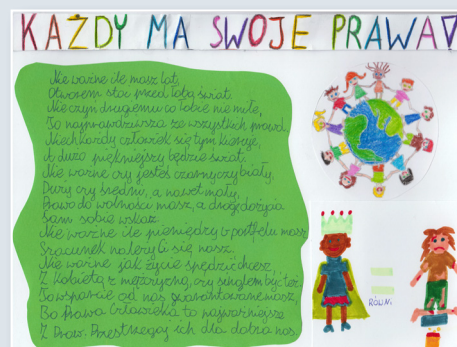 KAŻDY MA SWOJE PRAWA
Nie ważne ile masz lat,
Otworem stoi przed Tobą świat.
Nie czyń drugiemu co tobie nie miłe,
To najprawdziwsza ze wszystkich prawd.
Niech każdy człowiek się tym kieruje,
O dużo piękniejszy będzie świat.
Nie ważne czy jesteś czarny czy biały,
Duży czy średni, a nawet mały,
Prawo do wolności masz, a drogę do życia
Sam sobie wskaż.
Nie ważne ile pieniędzy w portfelu masz
Szacunek należy Ci się nasz.
Nie ważne jak życie spędzić chcesz,
Z kobietą z mężczyzną, czy singlem być też.
To wsparcie od nas gwarantowane masz,
Bo Prawa Człowieka to najważniejsze
Z Praw. Przestrzegaj ich dla dobra nas.
RÓWNI